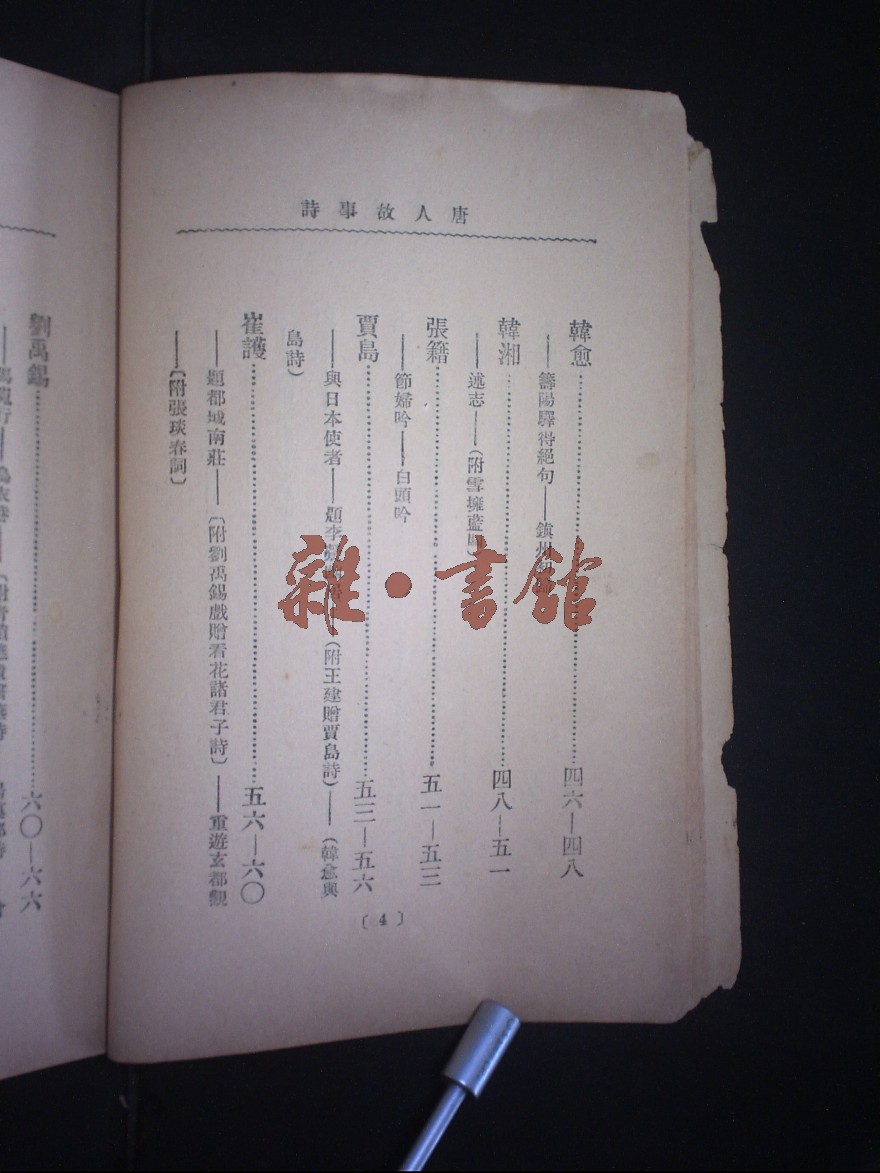 唐人故事詩
韓愈 四六—四八
——籌陽驛得絕句——鎮州
韓湘 四八—五一
——述志——(附雪擁藍關)
張籍 五一—五三
——節婦吟——白頭吟
賈島 五三—五六
——與日本使者——題李 (附王建贈賈島詩)——(韓愈與
島詩)
崔護 五六—六〇
——題都城南莊——〔附劉禹錫戲贈看花諸君子詩〕——重遊玄都觀
——〔附張琰春詞〕
〔4〕
劉禹錫 六〇—六六
雜·書館